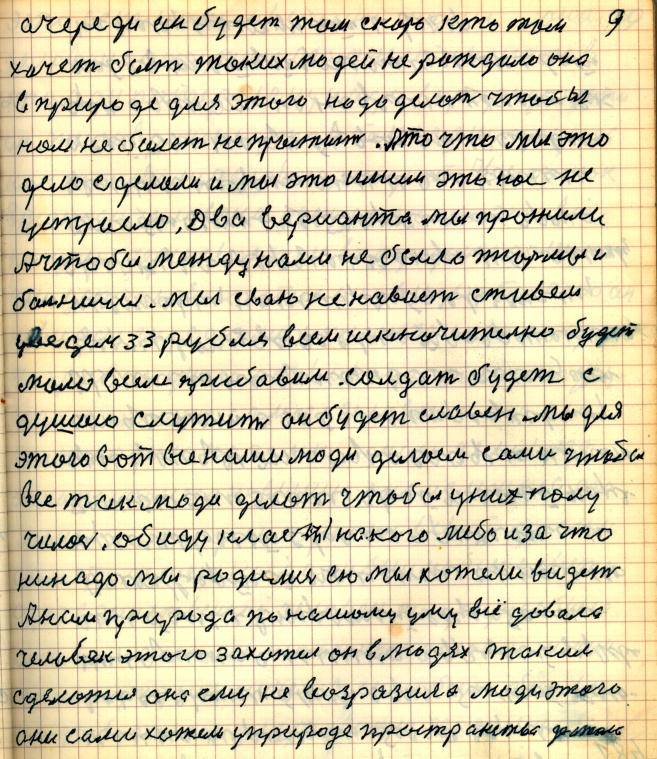 очереди он будет там скоро кто там 9
хочет болт таких людей не рождало она
в природе для этого надо делат чтобы
нам не болет не простыт. А то что мы это
дело сделали и мы это имеем это нас не
устроело, Два верианта мы прожили
А чтобы между нами не было тюрмы и
болницы. мы сваю не навист
33 рубля всем исключително будет
мало всем прибавим. солдат будет с
душою служит он будет славен. мы для
этого вот все наши люди делаем сами чтобы
все так люди делат чтобы у них полу
чилос. обиду клас на кого либо из а что
ни надо мы родилис ею мы хотели видет
А нам природа по нашому уму всё довала
человек этого захотел он в людях таким
сделался она ему не возразила люди этого
они сами хотели у природе пространства